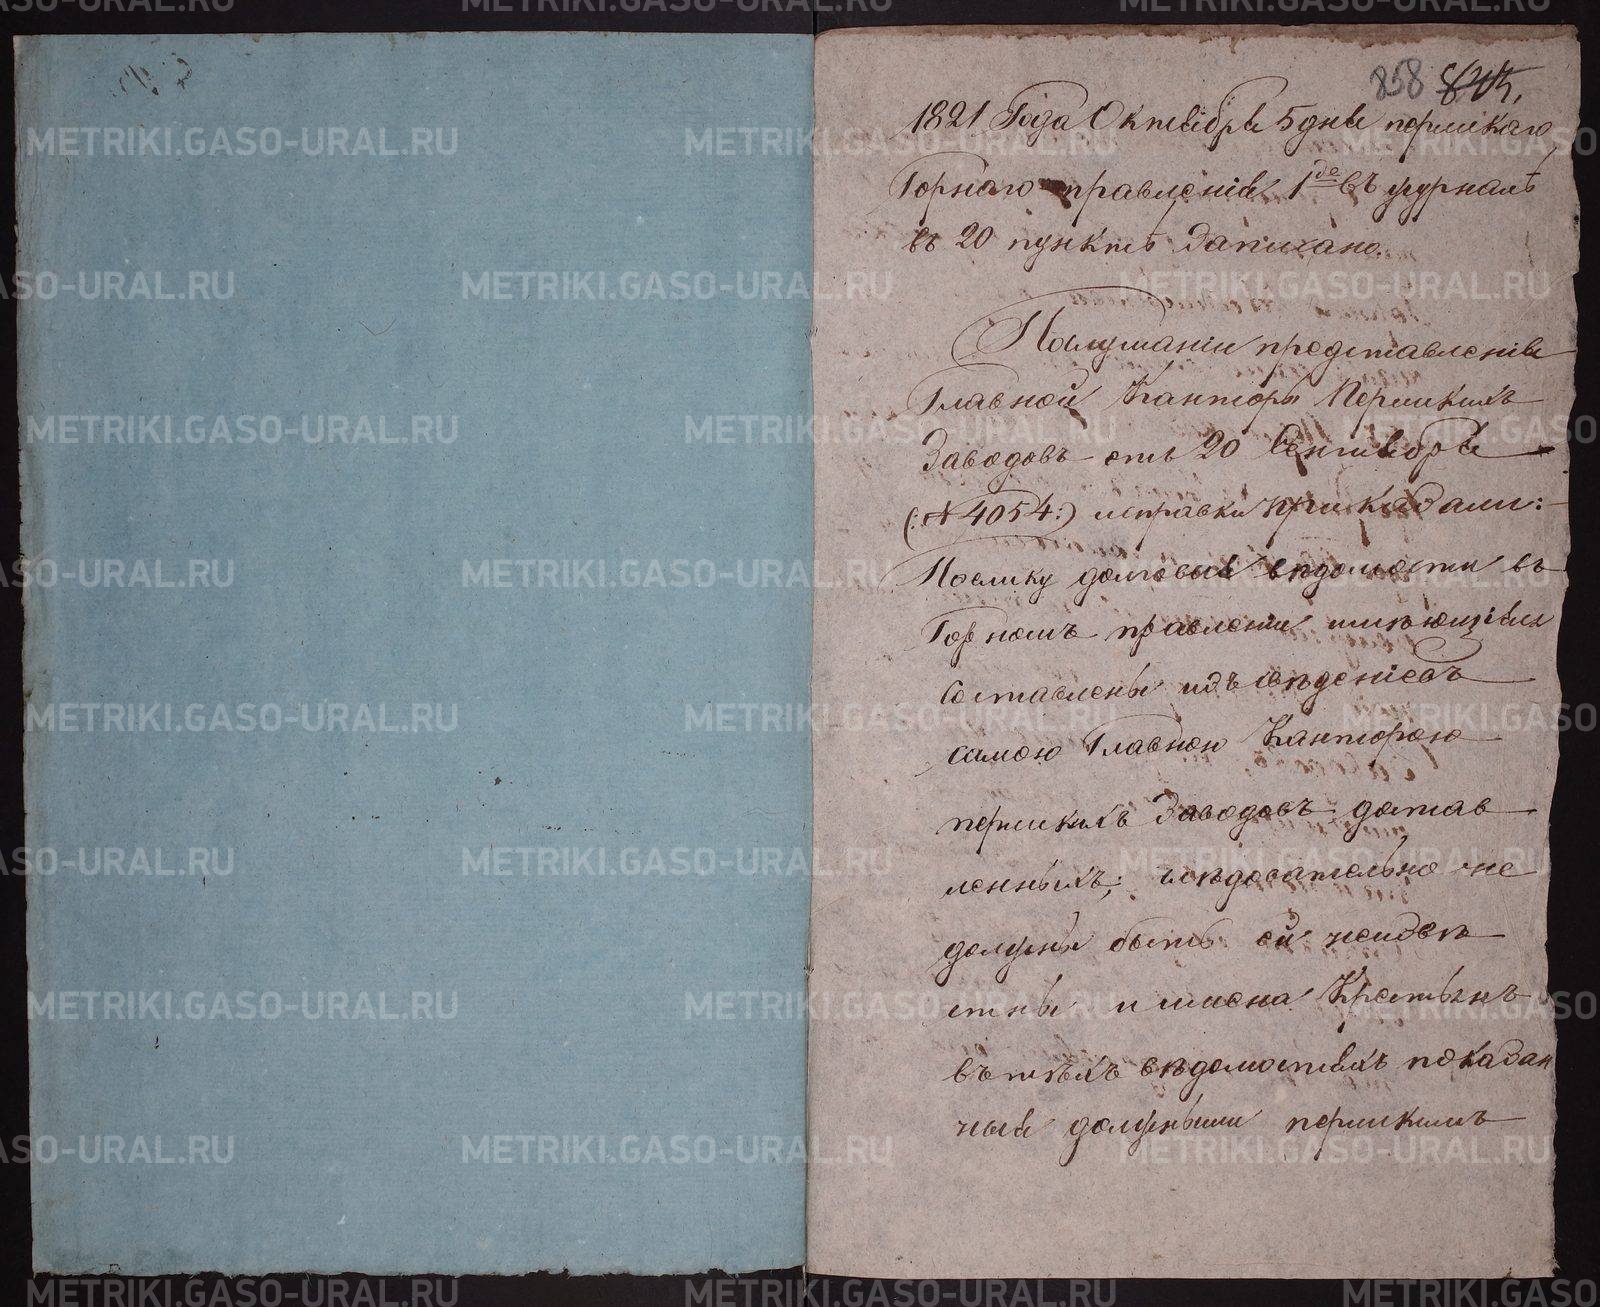 858
1821 Года Октября 5 дня пермскаго
Горнаго правления 1де въ журналѣ
въ 20 пунктѣ записано.
Послушании представления
Главной Канторы Пермскихъ
Заводовъ отъ 20 Сентября
(:№ 4054:) исправки приказали:
Поелику долговыя вѣдомости въ
Горномъ правлении имѣющияся
составлены изъ свѣдениевъ
самою Главною Канторою
пермскихъ Заводовъ достав
ленныхъ; слѣдовательно не
должны быть ей неизвѣ
стны и имена Крестьянъ
въ тѣхъ вѣдомостяхъ показан
ныя должными пермскимъ
METRIKI.GASO-URAL.RU